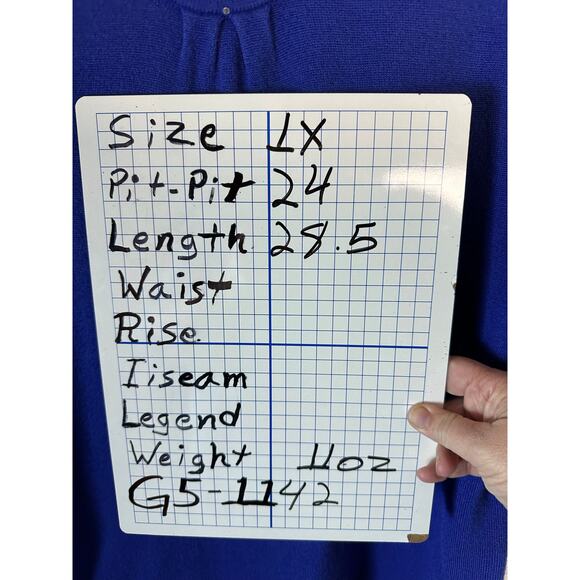 Size 1X
Pit-Pit 24
Length 28.5
Waist
Rise
Iiseam
Legend
Weight 11oz
G5-1142